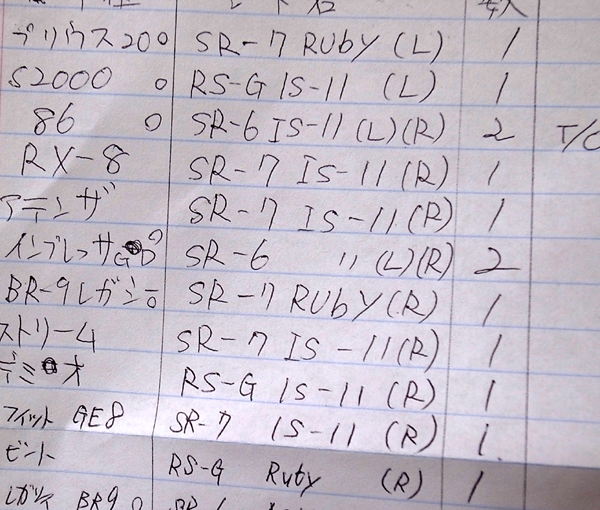 プリウス200 SR-7 RUBY (L) 1
S2000 0 RS-G IS-11 (L) 1
86 0 SR-6 IS-11 (L)(R) 2 T/C
RX-8 SR-7 IS-11 (R) 1
アテンザ SR-7 IS-11 (R) 1
インプレッサG SR-6 〃 (L)(R) 2
BR-9 レガシー SR-7 RUBY (R) 1
ストリーム SR-7 IS-11 (R) 1
デミオ RS-G IS-11 (R) 1
フィット GE8 SR-7 IS-11 (R) 1
RS-G Ruby (R) 1
BR9